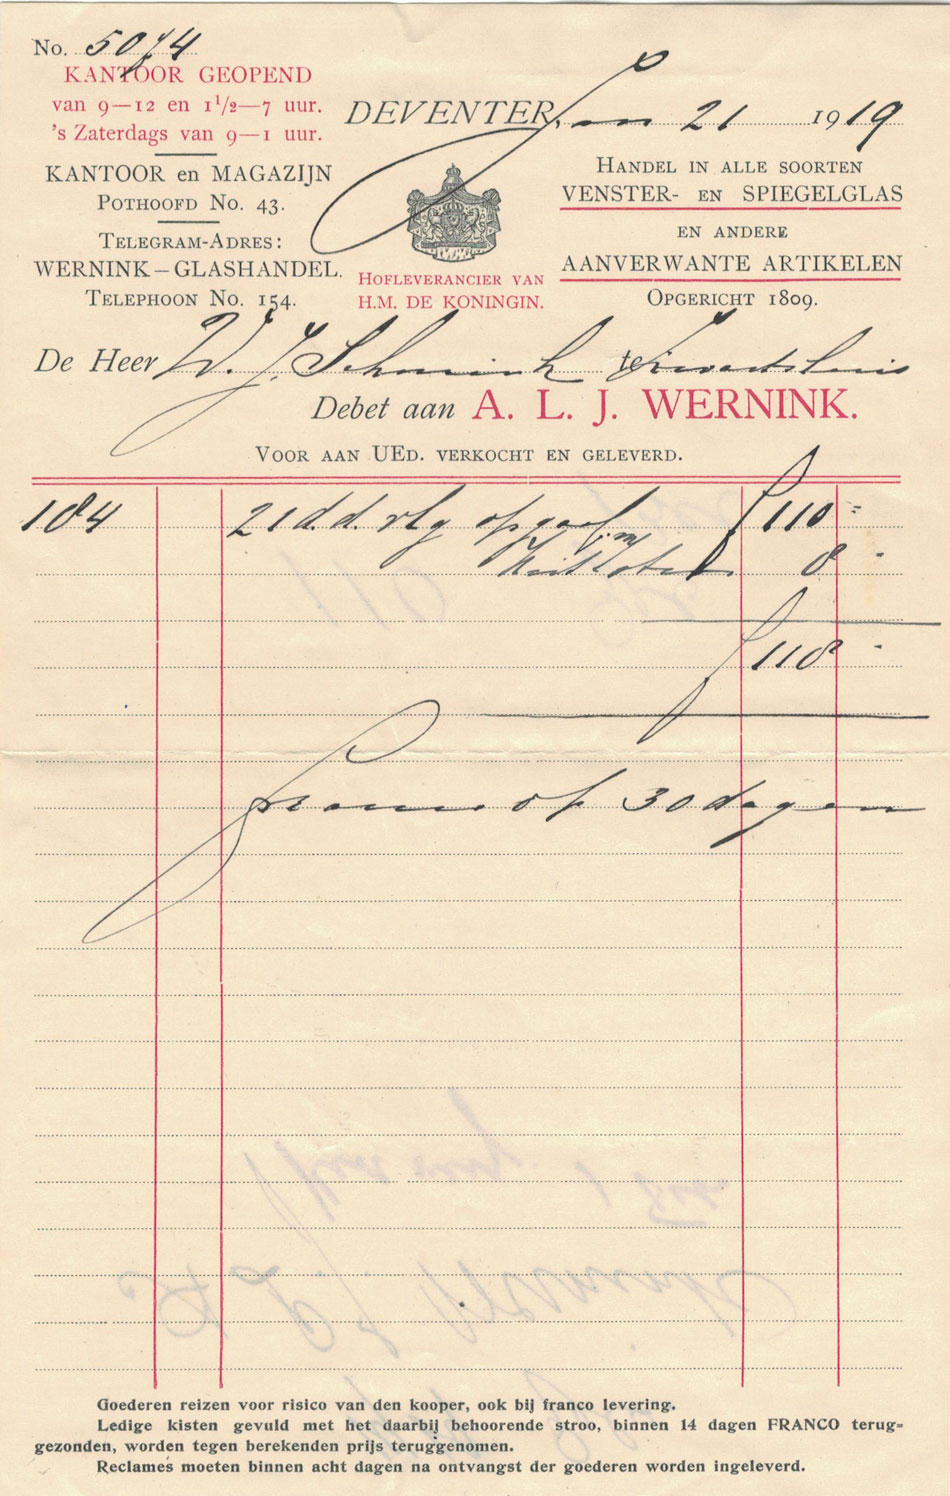 No. 5074
KANTOOR GEOPEND
van 9—12 en 1½—7 uur.
's Zaterdags van 9—1 uur.
KANTOOR en MAGAZIJN
POTHOOFD No. 43.
TELEGRAM-ADRES:
WERNINK—GLASHANDEL.
TELEPHOON No. 154.
DEVENTER, Jan 21 1919
HOFLEVERANCIER VAN
H.M. DE KONINGIN.
HANDEL IN ALLE SOORTEN
VENSTER- EN SPIEGELGLAS
EN ANDERE
AANVERWANTE ARTIKELEN
OPGERICHT 1809.
De Heer W. J. Schenink te Zwartsluis
Debet aan A. L. J. WERNINK.
VOOR AAN UED. VERKOCHT EN GELEVERD.
184 21 d.d. rlg f 110 =
8 "
f 118 "
franco op 30 dagen
Goederen reizen voor risico van den kooper, ook bij franco levering.
Ledige kisten gevuld met het daarbij behoorende stroo, binnen 14 dagen FRANCO terug=
gezonden, worden tegen berekenden prijs teruggenomen.
Reclames moeten binnen acht dagen na ontvangst der goederen worden ingeleverd.